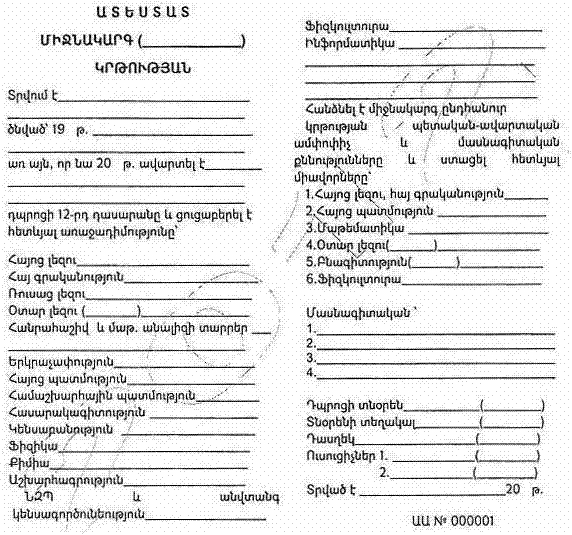 Ա Տ Ե Ս Տ Ա Տ
ՄԻՋՆԱԿԱՐԳ (_______________)
ԿՐԹՈՒԹՅԱՆ
Տրվում է____________________________
____________________________________
ծնված՝ 19 թ. ________________________
____________________________________
առ այն, որ նա 20 թ. ավարտել է_________
____________________________________
____________________________________
դպրոցի 12-րդ դասարանը և ցուցաբերել է
հետևյալ առաջադիմությունը՝
Հայոց լեզու__________________________
Հայ գրականություն____________________
Ռուսաց լեզու_________________________
Օտար լեզու (________)_________________
Հանրահաշիվ և մաթ. անալիզի տարրեր ___
____________________________________
Երկրաչափություն_____________________
Հայոց պատմություն____________________
Համաշխարհային պատմություն__________
Հասարակագիտություն _________________
Կենսաբանություն _____________________
Ֆիզիկա_____________________________
Քիմիա______________________________
Աշխարհագրություն____________________
ՆԶՊ և անվտանգ
կենսագործունեություն___________________
Ֆիզկուլտուրա_________________________
Ինֆորմատիկա ________________________
____________________________________
____________________________________
____________________________________
Հանձնել է միջնակարգ ընդհանուր
կրթության պետական-ավարտական
ամփոփիչ և մասնագիտական
քննությունները և ստացել հետևյալ
միավորները՝
1.Հայոց լեզու, հայ գրականություն_______
2.Հայոց պատմություն _________________
3.Մաթեմատիկա ______________________
4.Օտար լեզու(_______)________________
5.Բնագիտություն(_______)______________
6.Ֆիզկուլտուրա_______________________
Մասնագիտական ՝
1.___________________________________
2.___________________________________
3.___________________________________
4.___________________________________
Դպրոցի տնօրեն____________(_________)
Տնօրենի տեղակալ__________(_________)
Դասղեկ___________________(_________)
Ուսուցիչներ 1. _____________(_________)
2._____________(_________)
Տրված է ______________________20 թ.
ԱԱ № 000001